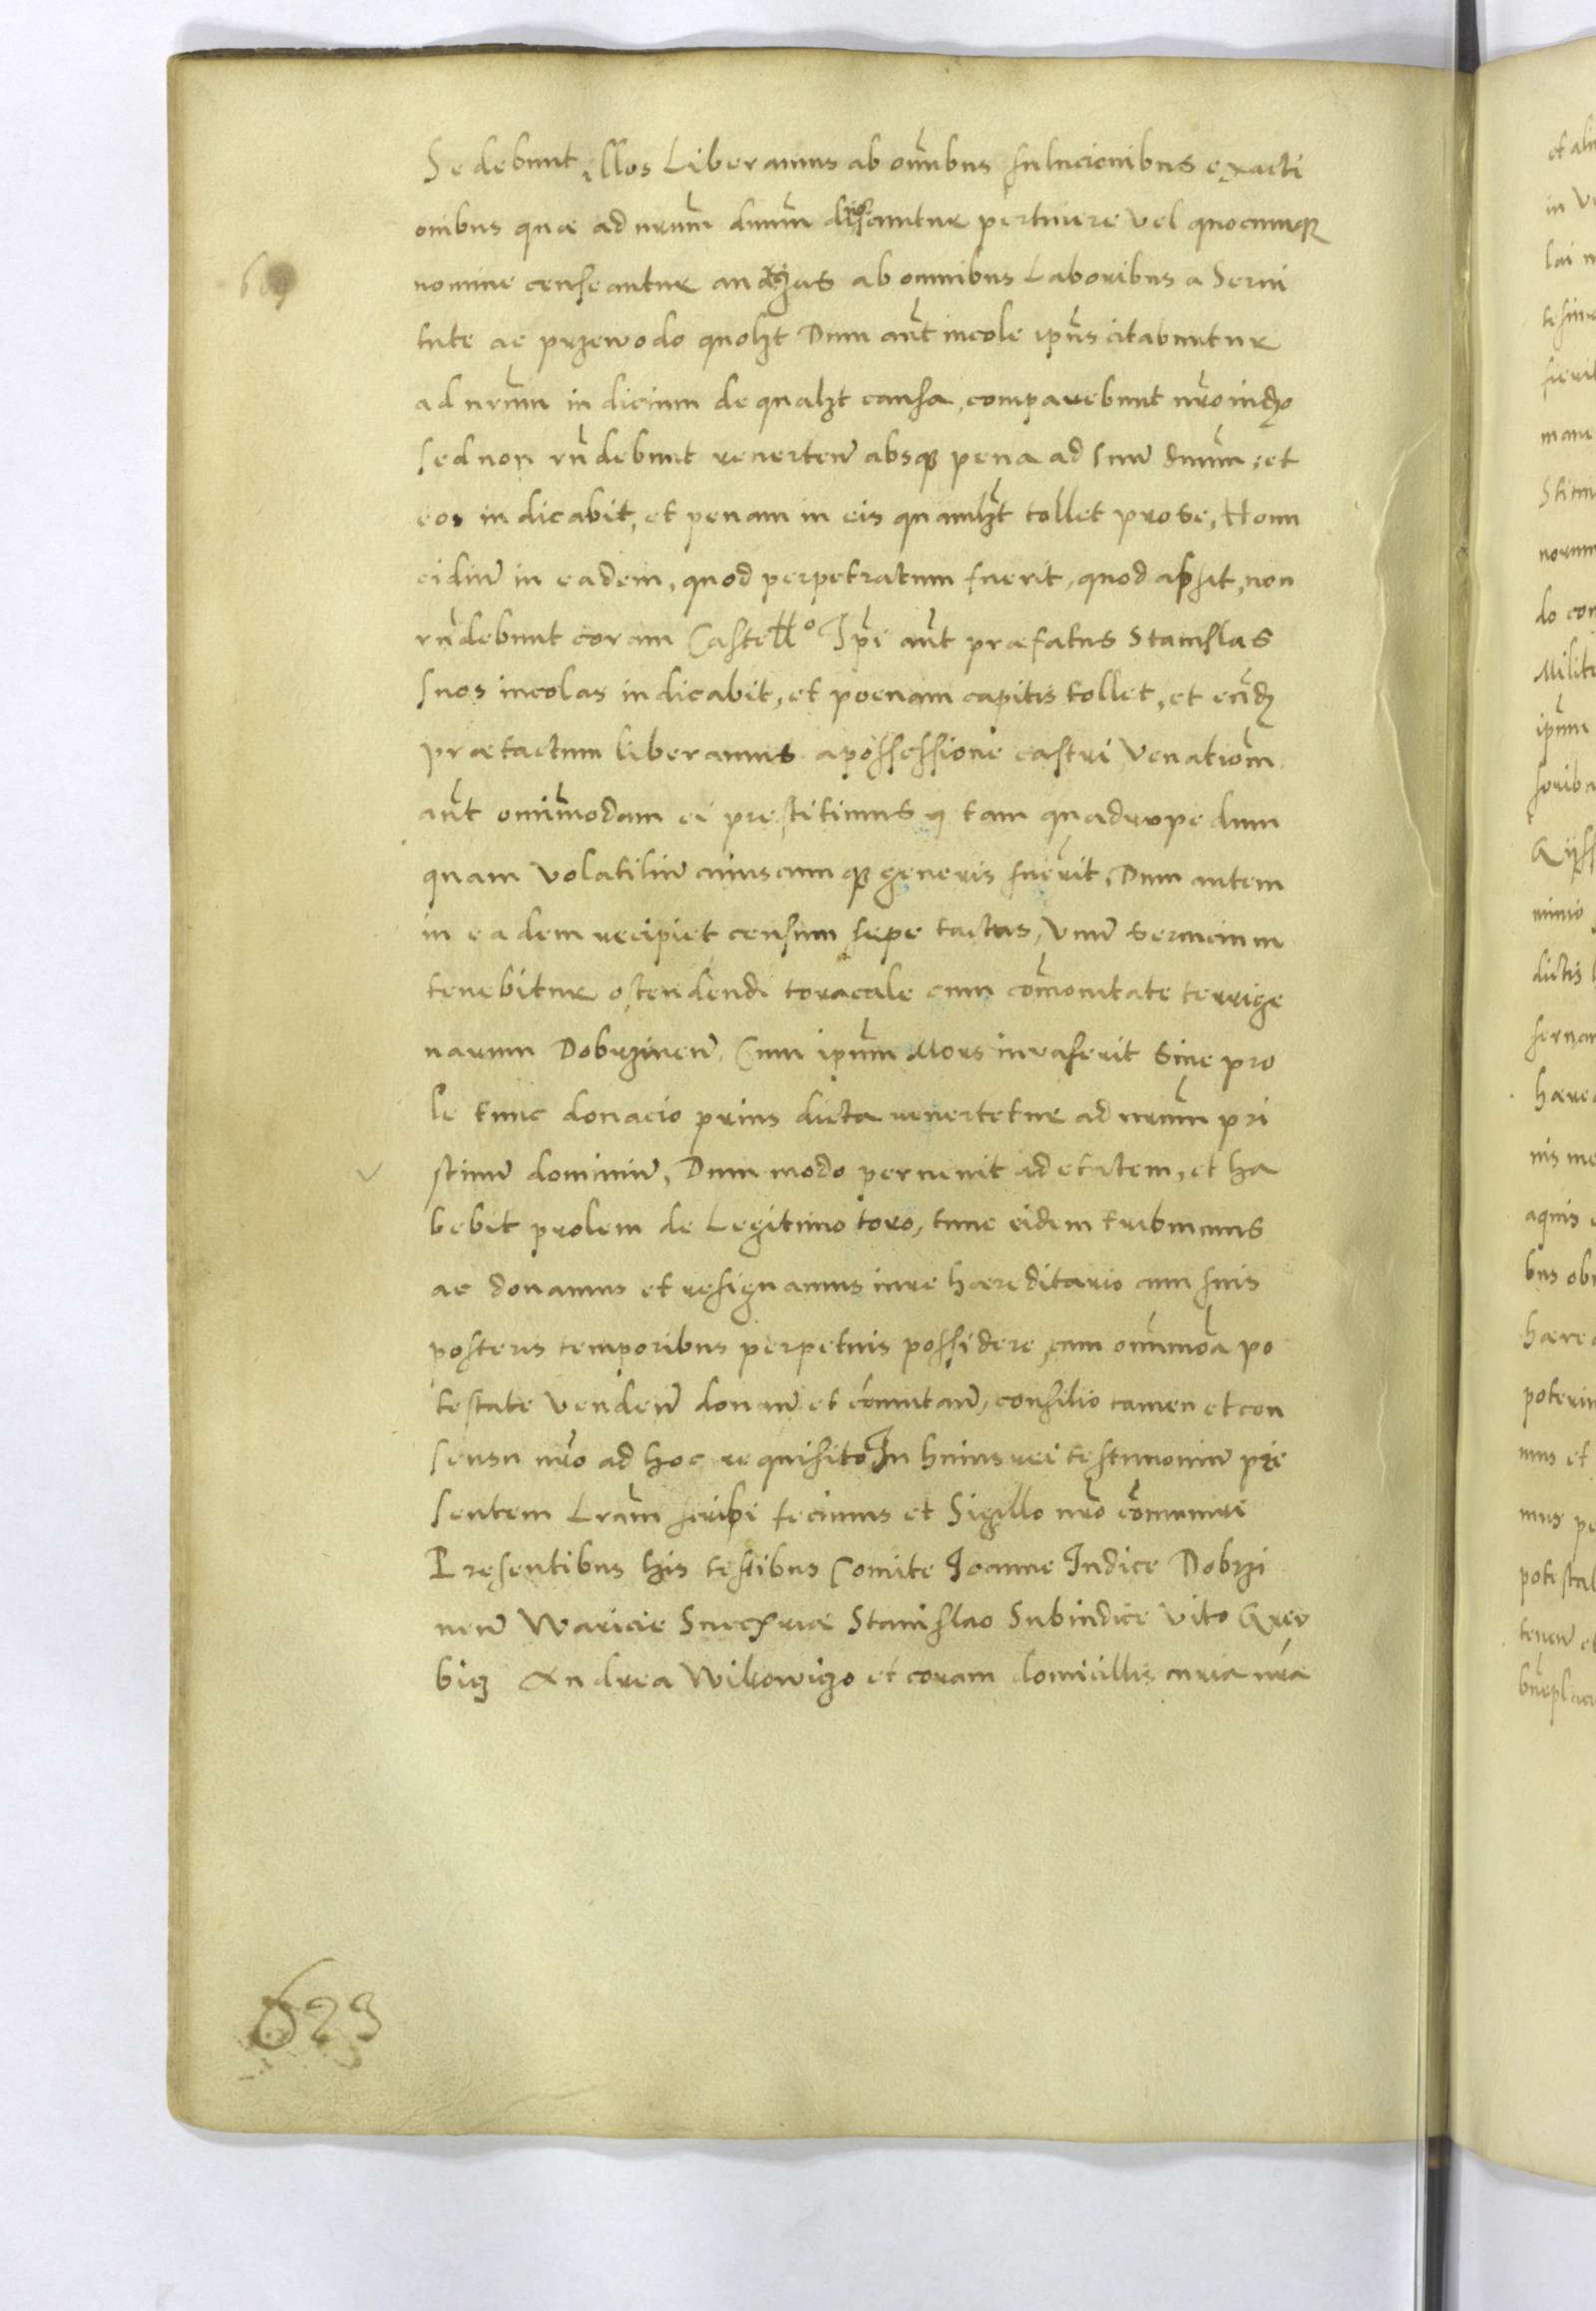 Sedebunt, illos Liberamus ab omībus solucionibus exacti
onibus quæ ad nrūm dnūm dinoscuntur pertinere vel quocumqꝫ
nomine censeantur angarias ab omnibus Laboribus a Serui
tute ac przewodo quolꝫt Dum aūt incole ipūs citabuntur
ad nrūm iudicium de qualꝫt causa, comparebunt nrō iudꝫo
sed non rn̄debunt reuertenr̄ absqꝫ pena ad suū dnūm, et
eos iudicabit, et penam in eis qnamlꝫt tollet pro se, Homi
cidiū in eadem, quod perpetratum fuerit, quod absit, non
rn̄debunt coram Castell° Ip̄i aūt præfatus Stanislas
suos incolas iudicabit, et poenam capitis tollet, et eūdꝫ
prætactum liberamus a possessione castri, Venatiom̄
aūt omīmodam ei prestitimus tam quadrupedum
quam volatiliū cuiuscumqꝫ generis fuerit, Dum autem
in eadem recipiet censum sepe tactus, vnū seruicium
tenebitur ostendendi toracale cum com̄onitate terrige
narum Dobrzinen̄ Cum ipūm Mors inuaserit sine pro
le tunc donacio prius dicta reuertetur ad nrūm pri
stinū dominiū, Dummodo peruenit ad etatem, et ha
bebit prolem de Legitimo toro, tunc eidem tribuimus
ac donamus et resignamus iure hæreditario cum suis
posteris temporibus perpetuis possidere, cum omīmoa po
testate venden̄ donan̄ et com̄utan̄, consilio tamen et con
sensu nrō ad hoc requisito In huius rei testimoniū præ
sentem Lrām scribi fecimus et Sigillo nrō com̄uniri
Presentibus his testibus Comite Joanne Judice Dobrzi
nen̄ Stanislao Subiudice Vito
Andrea Wilkowiꝫo et coram domicillis curia nrā
623